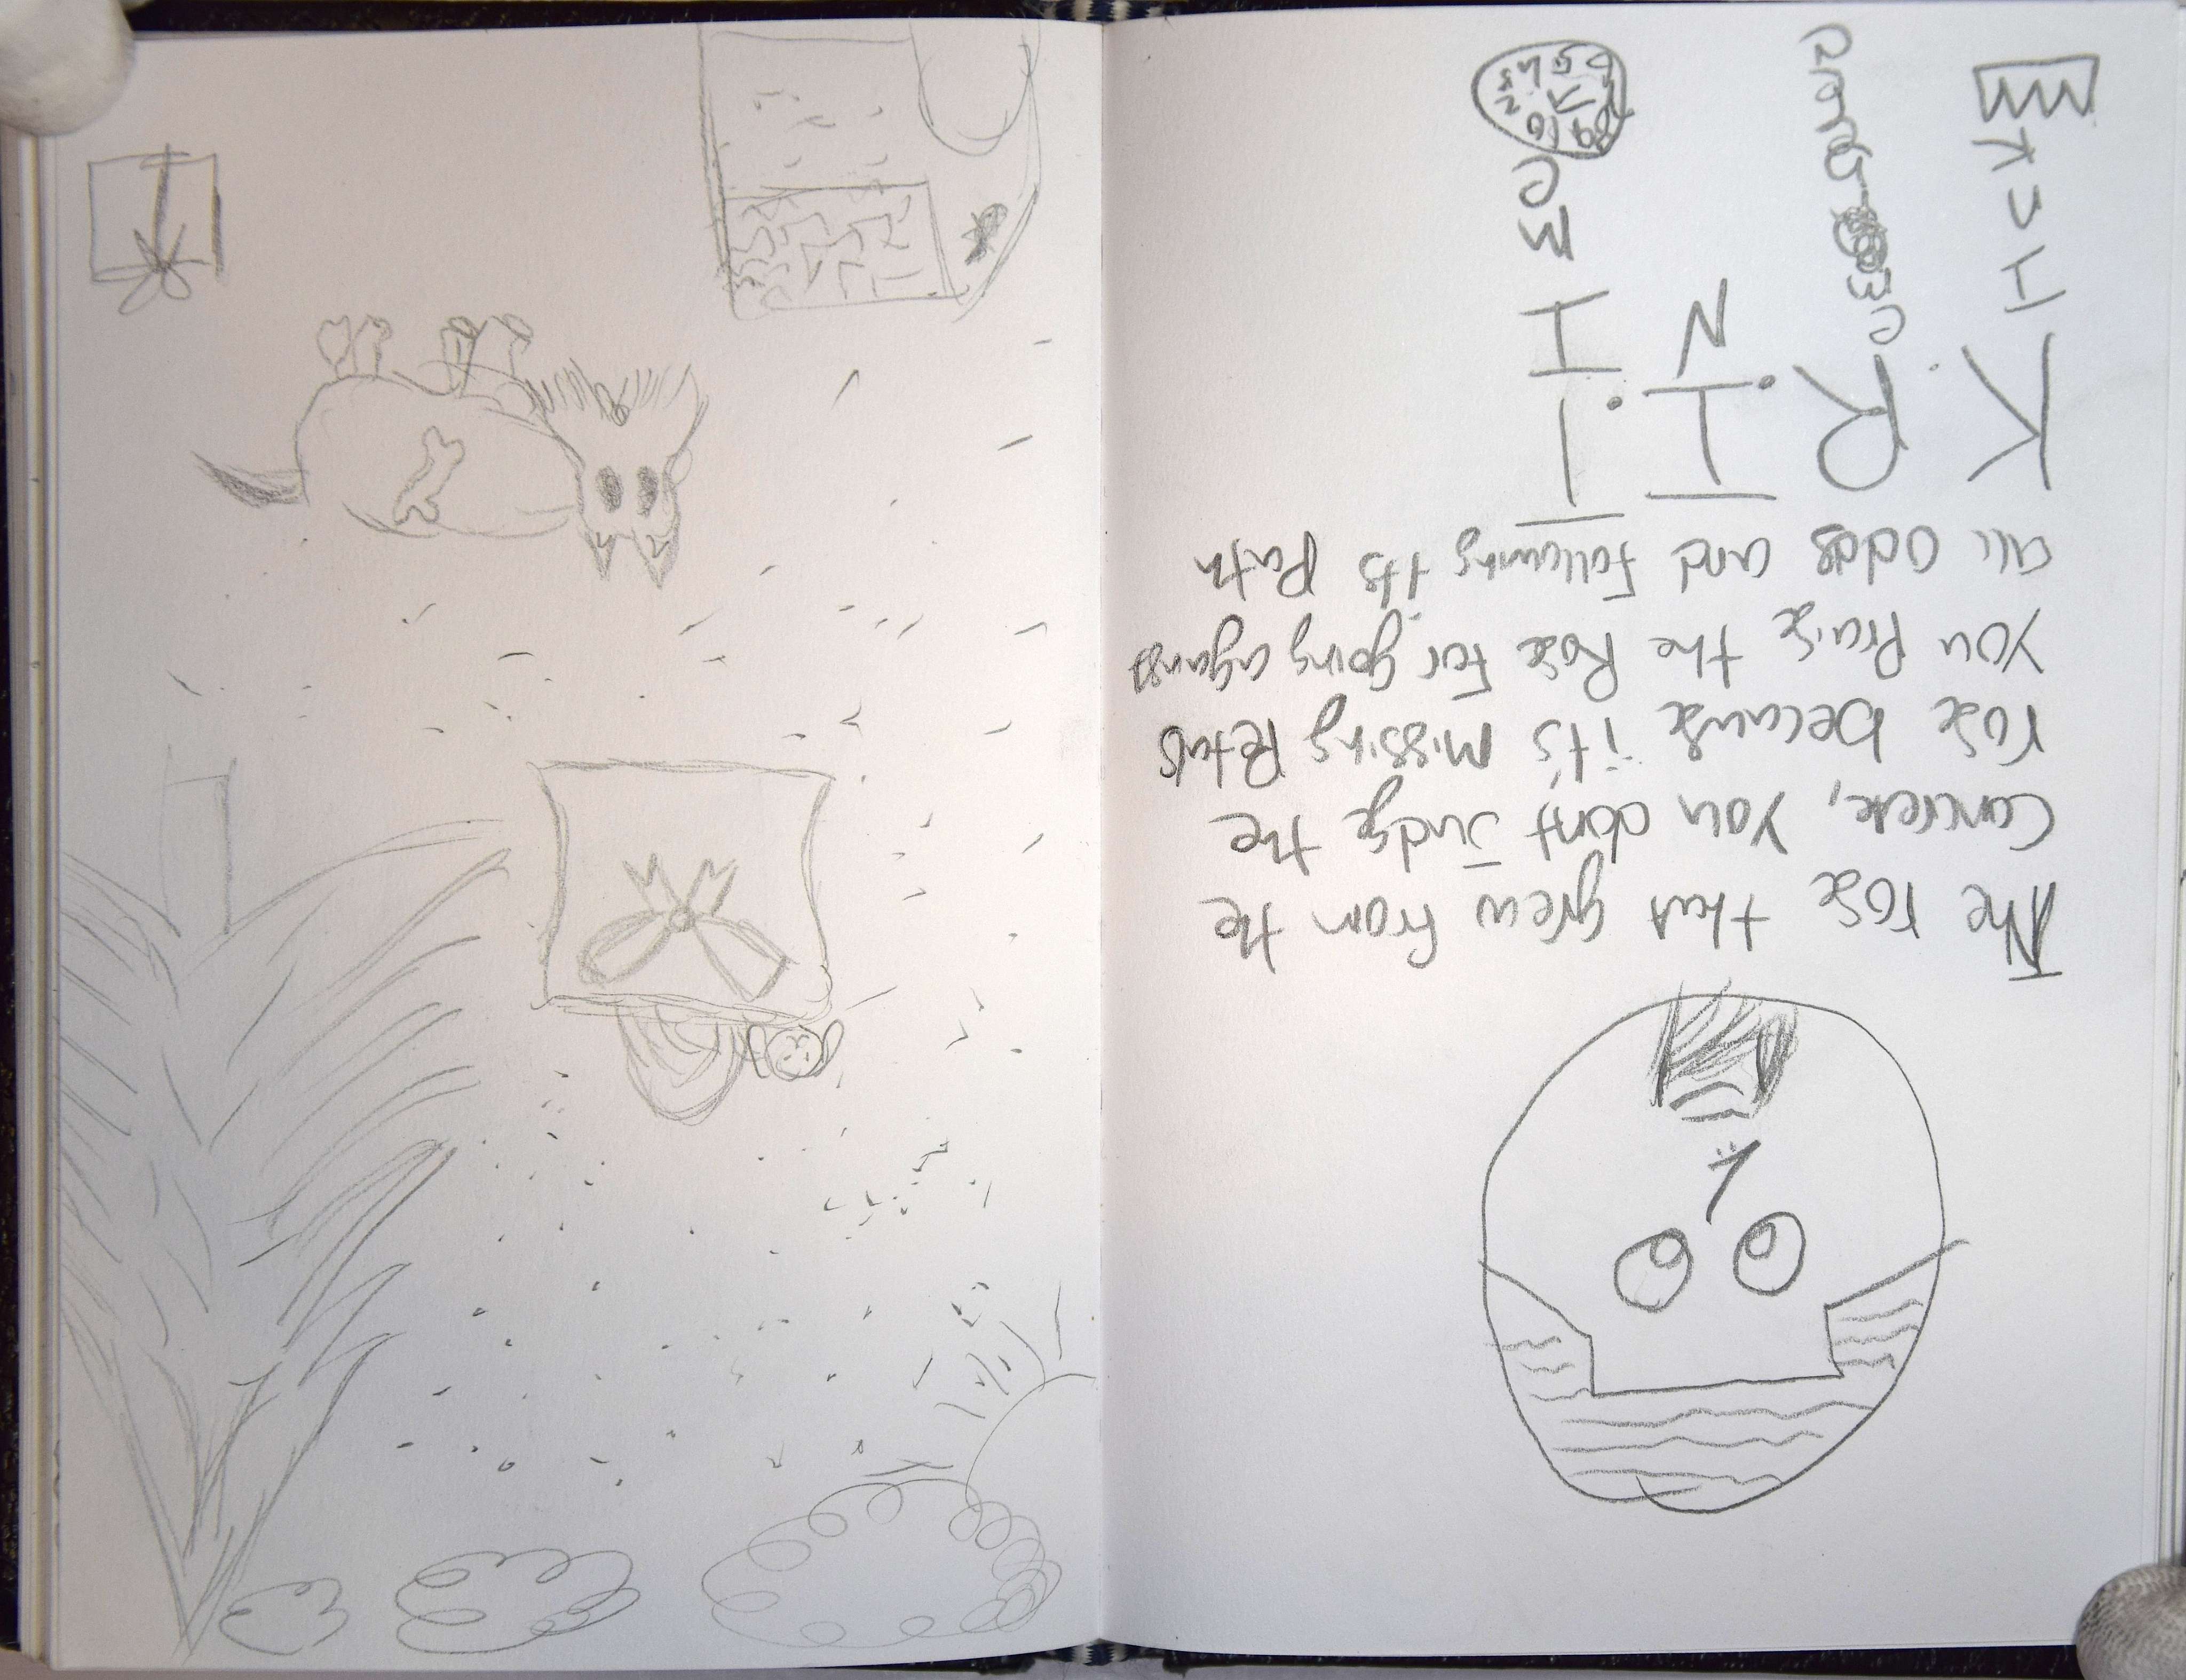 The rose that grew from the
concrete, you dont Judge the
rose because it's missing Petals
you Praise the Rose for going against
all odds and Following its Path
K R I T